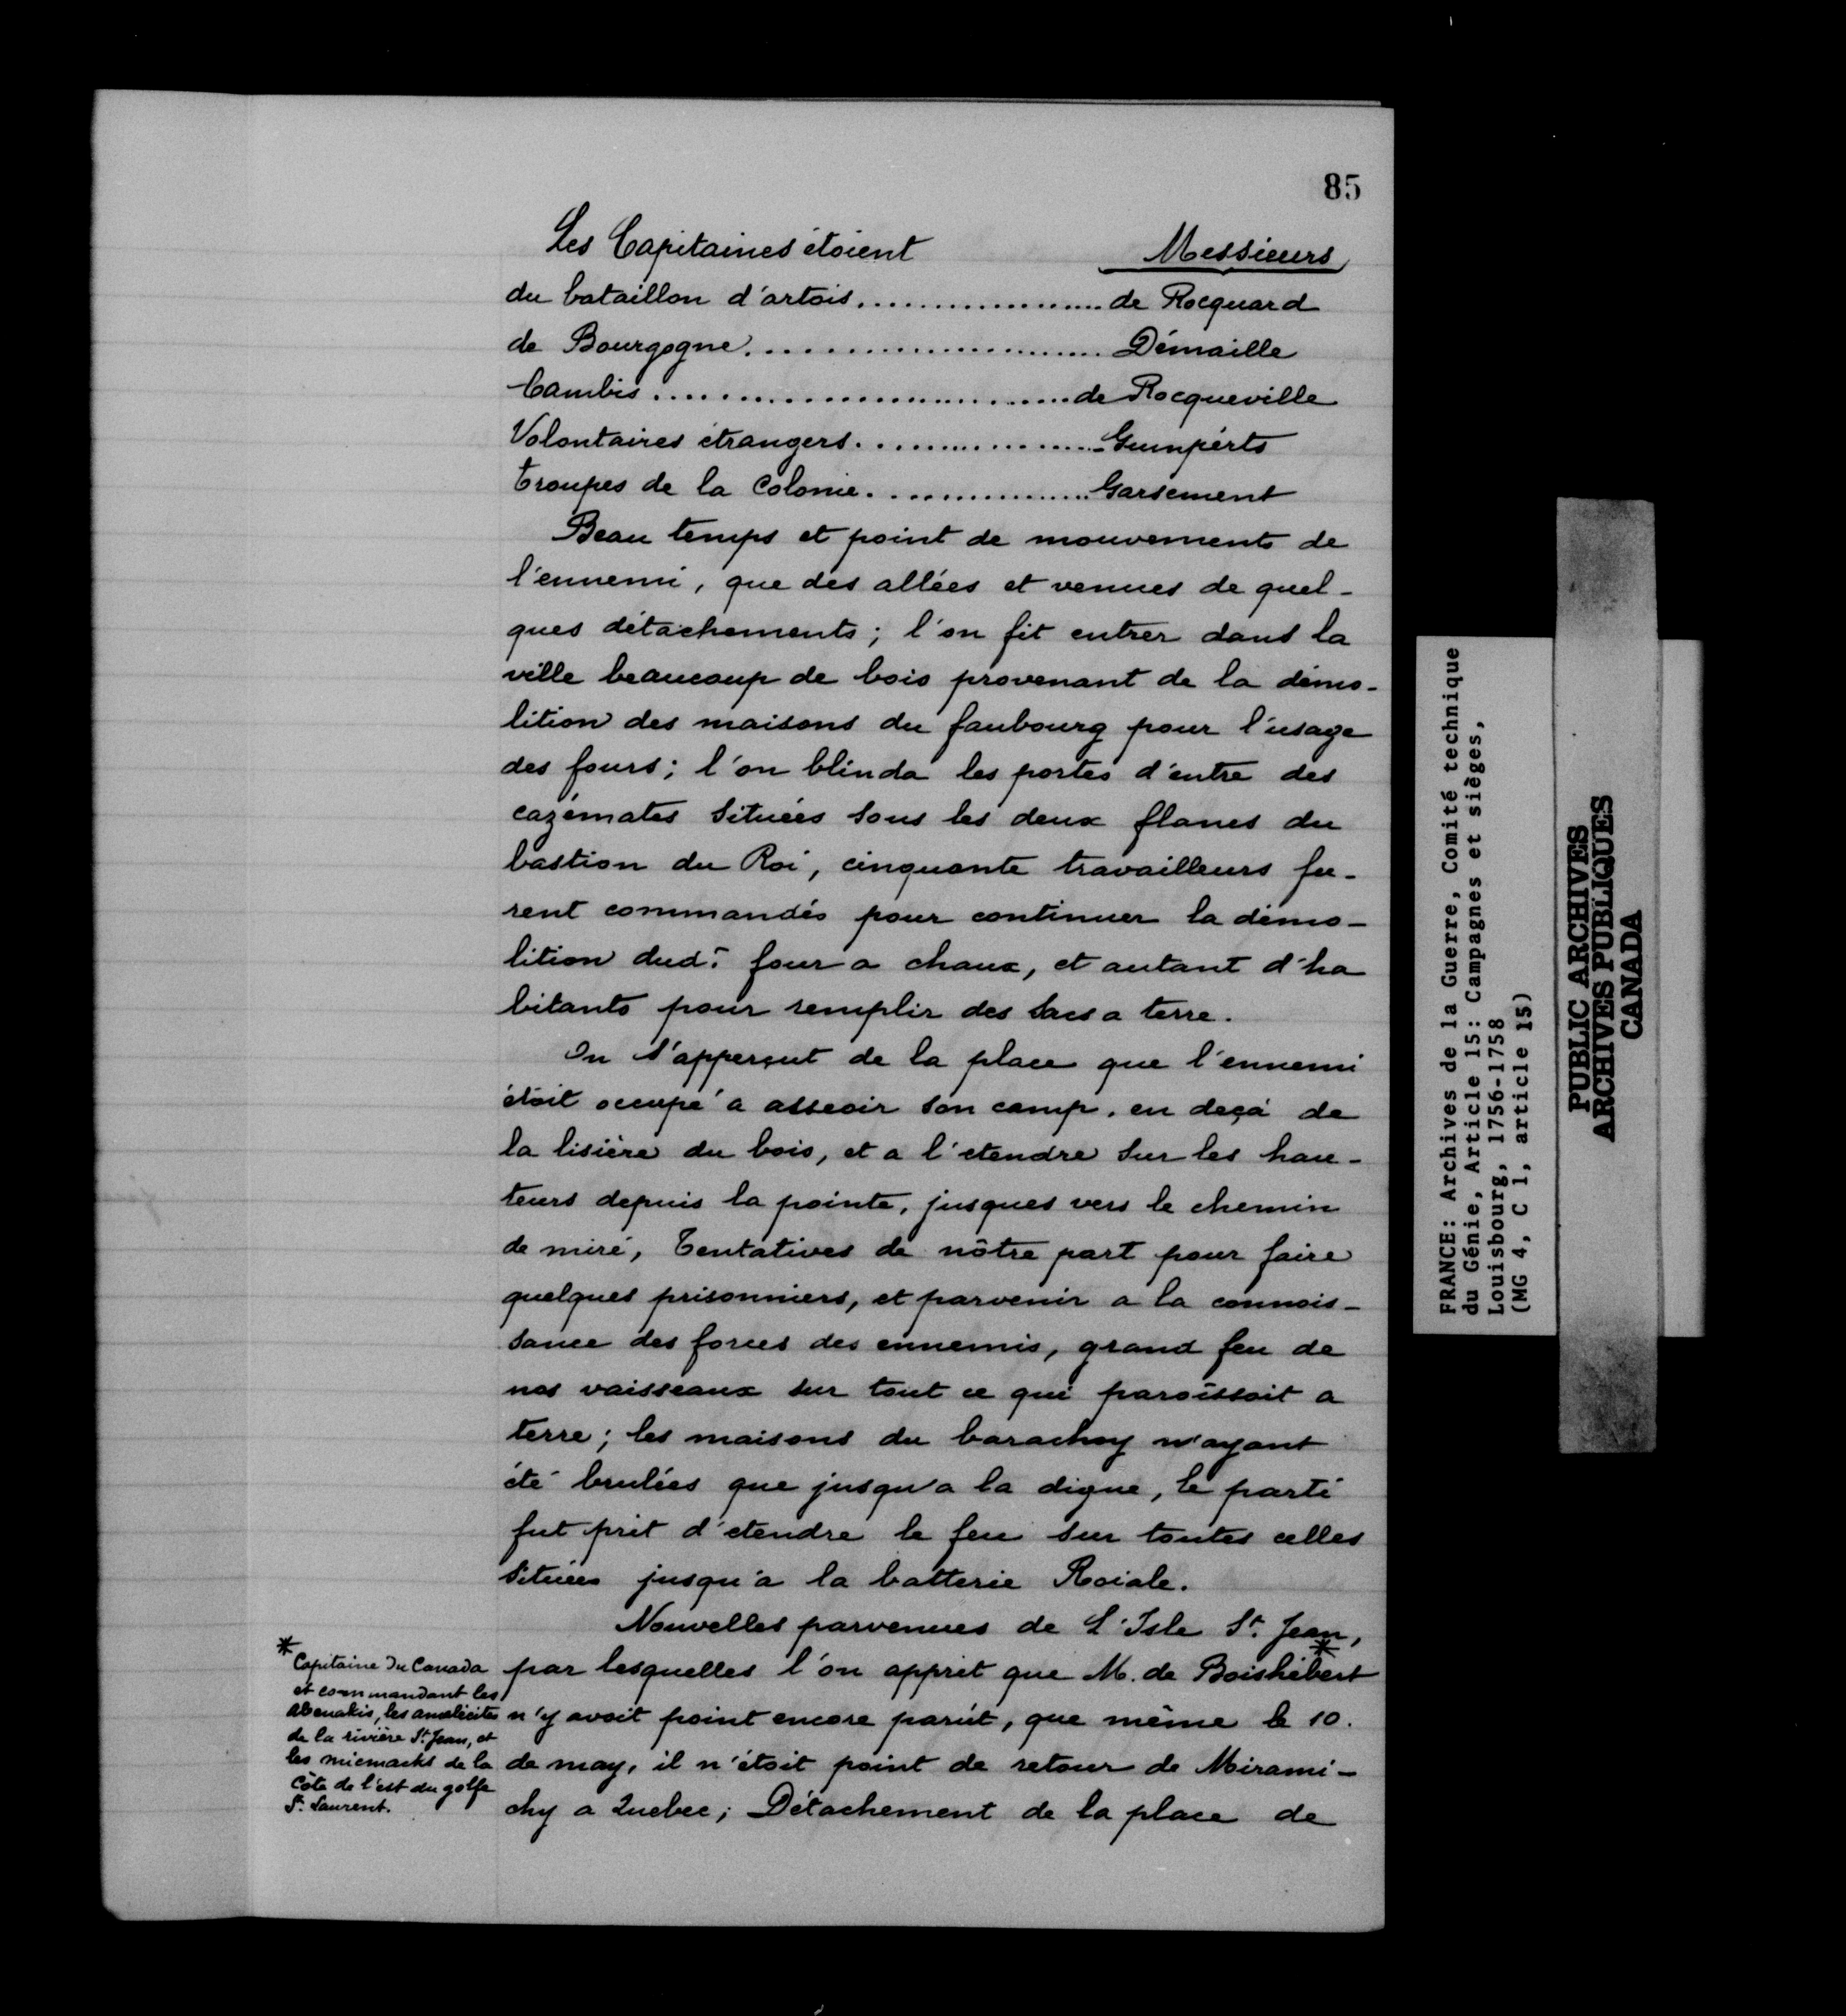 85
Les Capitaines étoient Messieurs
du bataillon d'artois.................... de Rocquard
de Bourgogne........................ Démaille
Cambis............................de Rocqueville
Volontaires étrangers...................Gumpérts
troupes de la Colonie..................Garsement
Beau temps et point de mouvements de
l'ennemi, que des allées et venues de quel-
ques détachements; l'on fit entrer dans la
ville beaucoup de bois provenant de la démo-
lition des maisons du faubourg pour l'usage
des fours; l'on blinda les portes d'entre des
cazémates situées sous les deux flancs du
bastion du Roi, cinquante travailleurs fu-
rent commandés pour continuer la démo-
lition dud.t four a chaux, et autant d'ha
bitants pour remplir des sacs a terre.
On s'apperçut de la place que l'ennemi
étoit occupé a asseoir son camp, en deçà de
la lisière du bois, et a l'etendre sur les hau-
teurs depuis la pointe, jusques vers le chemin
de miré, Tentatives de nôtre part pour faire
quelques prisonniers, et parvenir a la connois-
sance des forces des ennemis, grand feu de
nos vaisseaux sur tout ce qui paroissoit a
terre; les maisons du barachoy n'ayant
été brulées que jusqu'a la digue, le parti
fut prit d'etendre le feu sur toutes celles
situées jusqu'à la batterie Roiale.
Nouvelles parvenues de L'Isle St. Jean,
par lesquelles l'on apprit que M. de Boishébert *
n'y avoit point encore parût, que même le 10.
de may, il n'étoit point de retour de Mirami-
chy a Quebec; Détachement de la place de
* Capitaine du Canada
et commandant les
abenakis, les amelécites
de la rivière St. Jean, et
les micmacks de la
Côte de l'est du golfe
St. Laurent.
FRANCE: Archives de la Guerre, Comité technique
du Génie, Article 15: Campagnes et sièges,
Louisbourg, 1756-1758
(MG 4, C 1, article 15)
PUBLIC ARCHIVES
ARCHIVES PUBLIQUES
CANADA